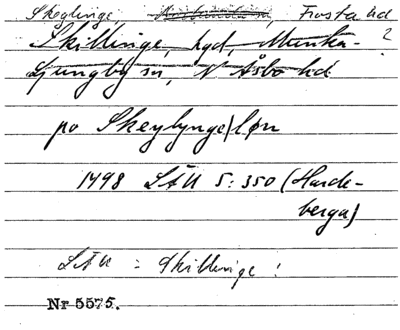 Skeglinge, Frosta hd
Skillinge, by, Munka- ?
Ljungby sn, N Åsbo hd
po Skeylynge|løn
1498 LÄU 5:350 (Harde-
berga)
LÄU = Skillinge!
Nr 5575.